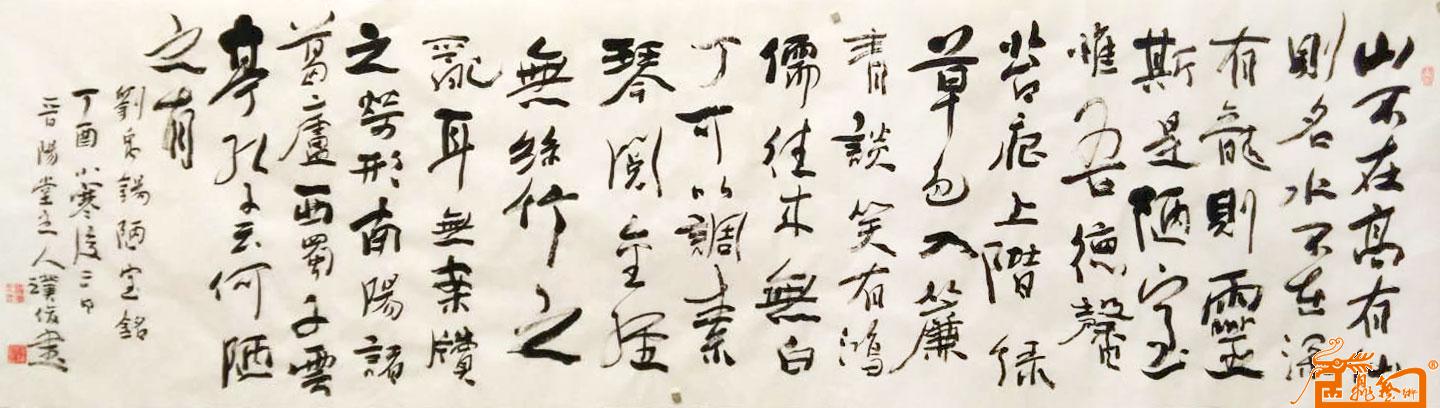 山不在高有仙
則名水不在深
有龍則靈
斯是陋室
惟吾德馨
苔痕上階緑
草色入簾
青談笑有鴻
儒往来無白
丁可以調素
琴閲金經
無絲竹之
亂耳無案牘
之勞形南陽諸
葛廬西蜀子雲
亭孔子云何陋
之有
劉禹錫陋室銘
丁酉小寒後三日
晉陽堂主人書